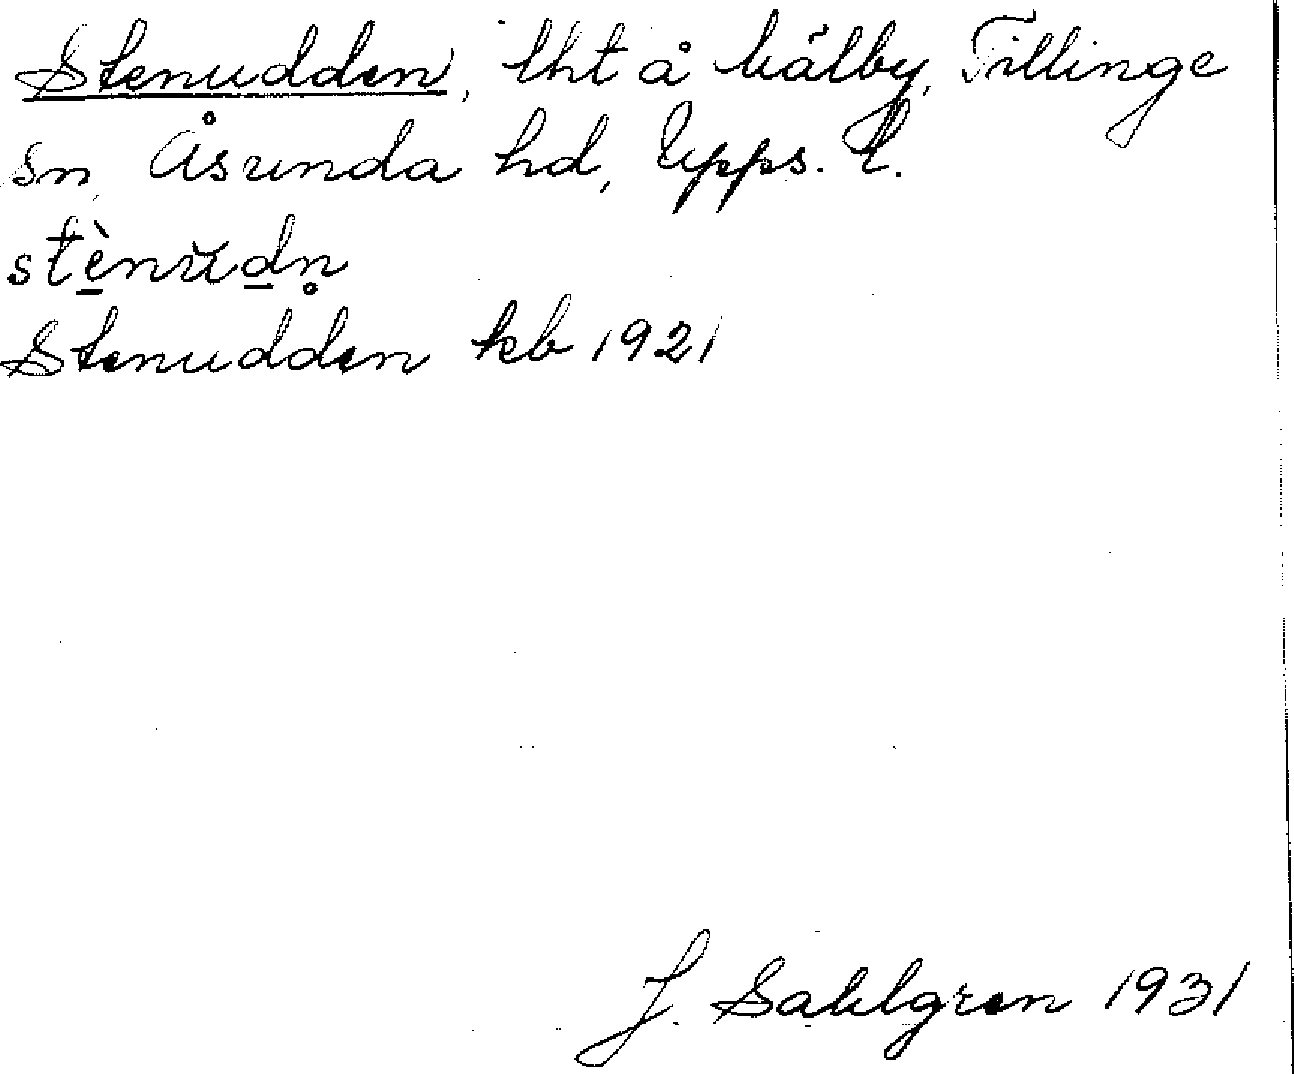 Stenudden, lht å Kälby, Tillinge
sn, Åsunda hd, Upps. l.
stènŭdn̥
Stenudden kb 1921
J. Sahlgren 1931